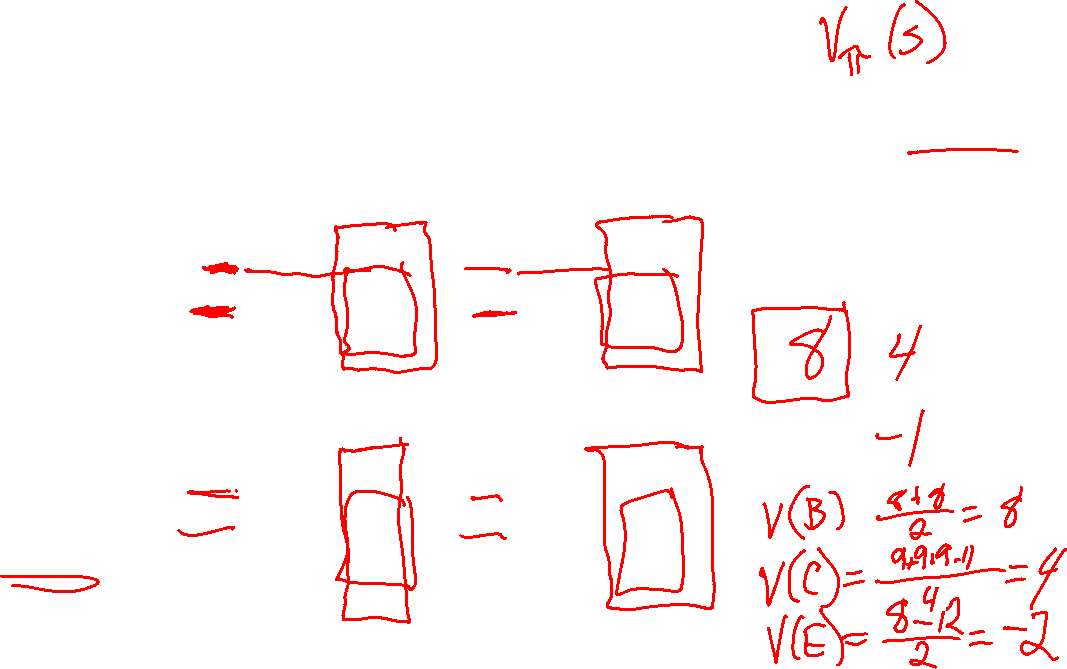 Vπ(s)
8 4
-1
V(B) (8+8)/2 = 8
V(C) = (9+9+9-11)/4 = 4
V(E) = (8-12)/2 = -2